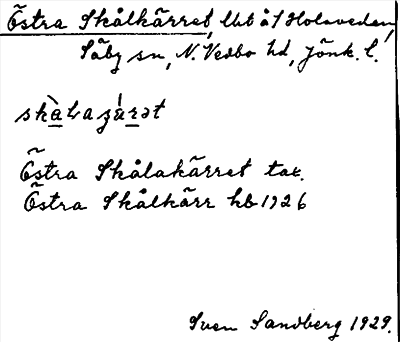 Östra Skålkärret, lht å S Holaveden,
Säby sn, N. Vedbo hd, Jönk. l.
Östra Skålakärret tax.
Östra Skålkärr hb 1926
Sven Sandberg 1929.